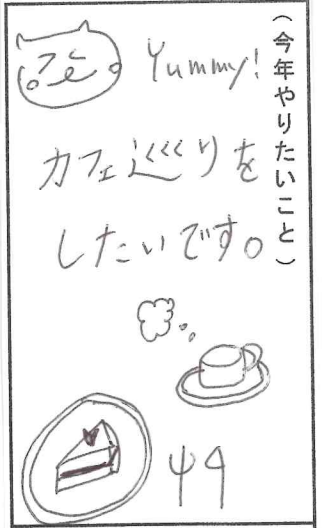 (今年やりたいこと)
Yummy!
カフェ巡りを
したいです。